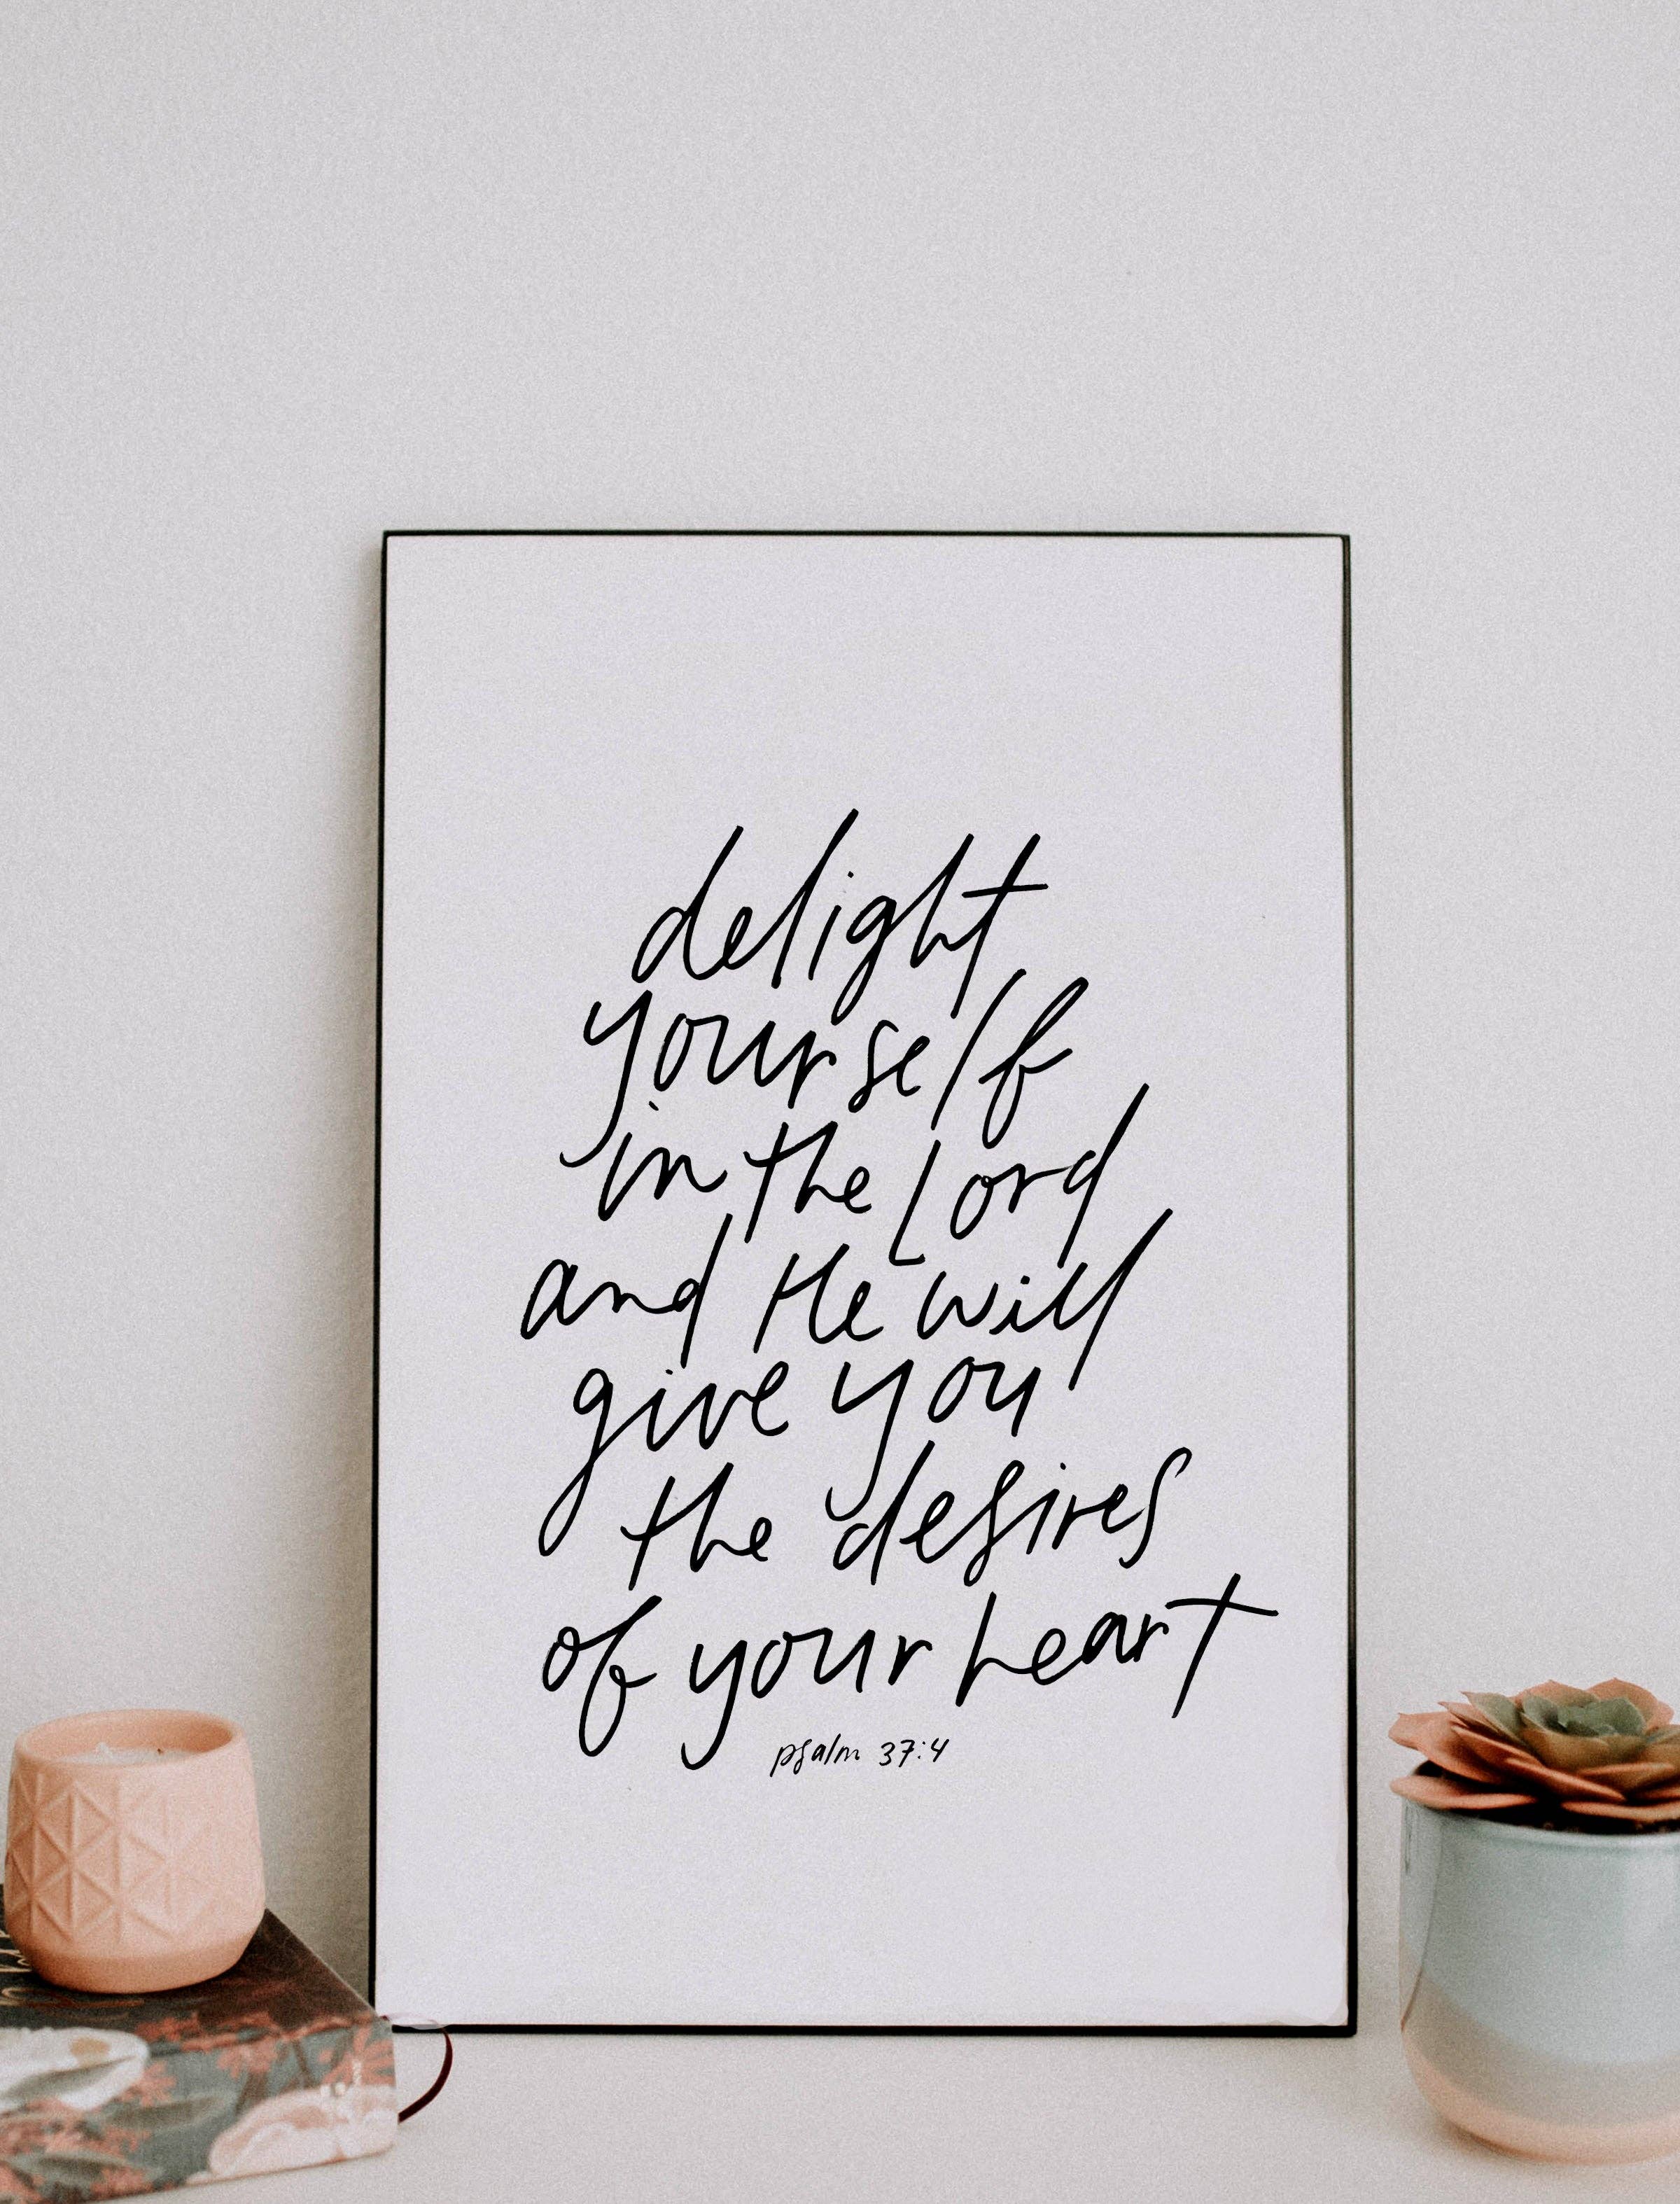 delight
yourself
in the Lord
and He will
give you
the desires
of your heart
psalm 37:4